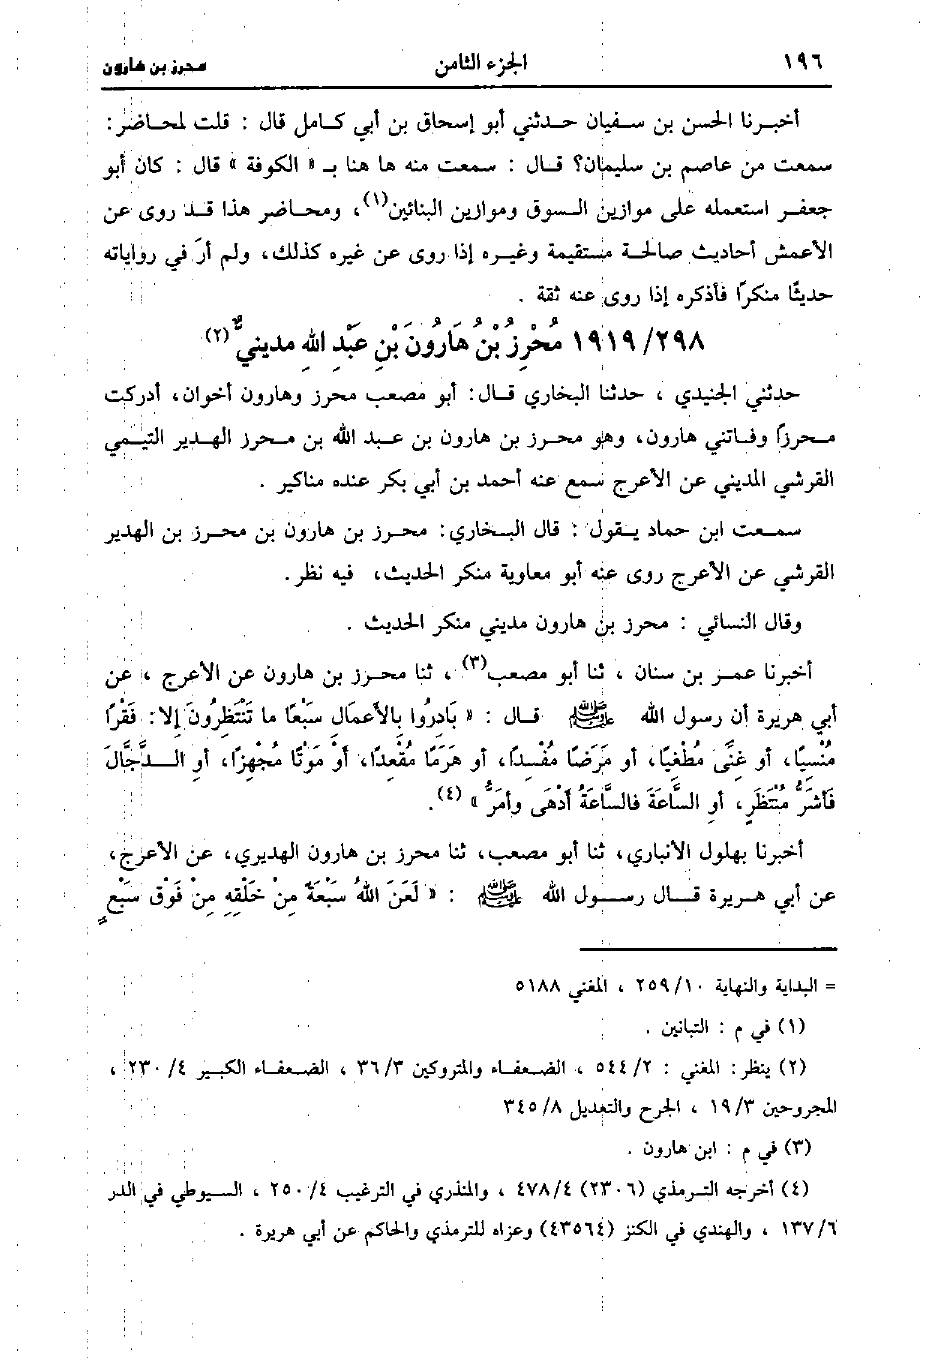 ١٩٦ الجزء الثامن محرز بن هارون
أخبرنا الحسن بن سفيان حدثني أبو إسحاق بن أبي كامل قال : قلت لمحاضر :
سمعت من عاصم بن سليمان؟ قال : سمعت منه ها هنا بـ « الكوفة » قال : كان أبو
جعفر استعمله على موازين السوق وموازين البنائين(١)، ومحاضر هذا قد روى عن
الأعمش أحاديث صالحة مستقيمة وغيره إذا روى عن غيره كذلك، ولم أرَ في رواياته
حديثًا منكرًا فأذكره إذا روى عنه ثقة .
١٩١٩/٢٩٨ مُحْرِزُ بْنُ هَارُونَ بْنِ عَبْدِ اللهِ مدينيٌّ(٢)
حدثني الجنيدي ، حدثنا البخاري قال: أبو مصعب محرز وهارون أخوان، أدركت
محرزًا وفاتني هارون، وهو محرز بن هارون بن عبد الله بن محرز الهدير التيمي
القرشي المديني عن الأعرج سمع عنه أحمد بن أبي بكر عنده مناكير .
سمعت ابن حماد يقول : قال البخاري: محرز بن هارون بن محرز بن الهدير
القرشي عن الأعرج روى عنه أبو معاوية منكر الحديث، فيه نظر.
وقال النسائي : محرز بن هارون مديني منكر الحديث .
أخبرنا عمر بن سنان ، ثنا أبو مصعب(٣) ، ثنا محرز بن هارون عن الأعرج ، عن
أبي هريرة أن رسول الله ﷺ قال : « بَادِرُوا بِالأَعمَالِ سَبْعًا ما تَنْتَظِرُونَ إلا: فَقْرًا
مُنْسِيًا، أو غِنًى مُطْغيًا، أو مَرَضًا مُفْسِدًا، أو هَرَمًا مُفْعِدًا، أوْ مَوْتًا مُجْهِزًا، أو الدَّجَّالَ
فَأشَرُّ مُنْتَظَرٍ، أو السَّاعَةَ فالسَّاعَةُ أدْهَى وأمَرُّ » (٤).
أخبرنا بهلول الأنباري، ثنا أبو مصعب، ثنا محرز بن هارون الهديري، عن الأعرج،
عن أبي هريرة قال رسول الله ﷺ : « لَعَنَ اللهُ سَبْعَةً مِنْ خَلْقِهِ مِنْ فَوْق سَبْعِ
= البداية والنهاية ٢٥٩/١٠ ، المغني ٥١٨٨
(١) في م : التبانين .
(٢) ينظر: المغني : ٥٤٤/٢ ، الضعفاء والمتروكين ٣٦/٣ ، الضعفاء الكبير ٢٣٠/٤ ،
المجروحين ١٩/٣ ، الجرح والتعديل ٣٤٥/٨
(٣) في م : ابن هارون .
(٤) أخرجه الترمذي (٢٣٠٦) ٤٧٨/٤ ، والمنذري في الترغيب ٢٥٠/٤ ، السيوطي في الدر
١٣٧/٦ ، والهندي في الكنز (٤٣٥٦٤) وعزاه للترمذي والحاكم عن أبي هريرة .